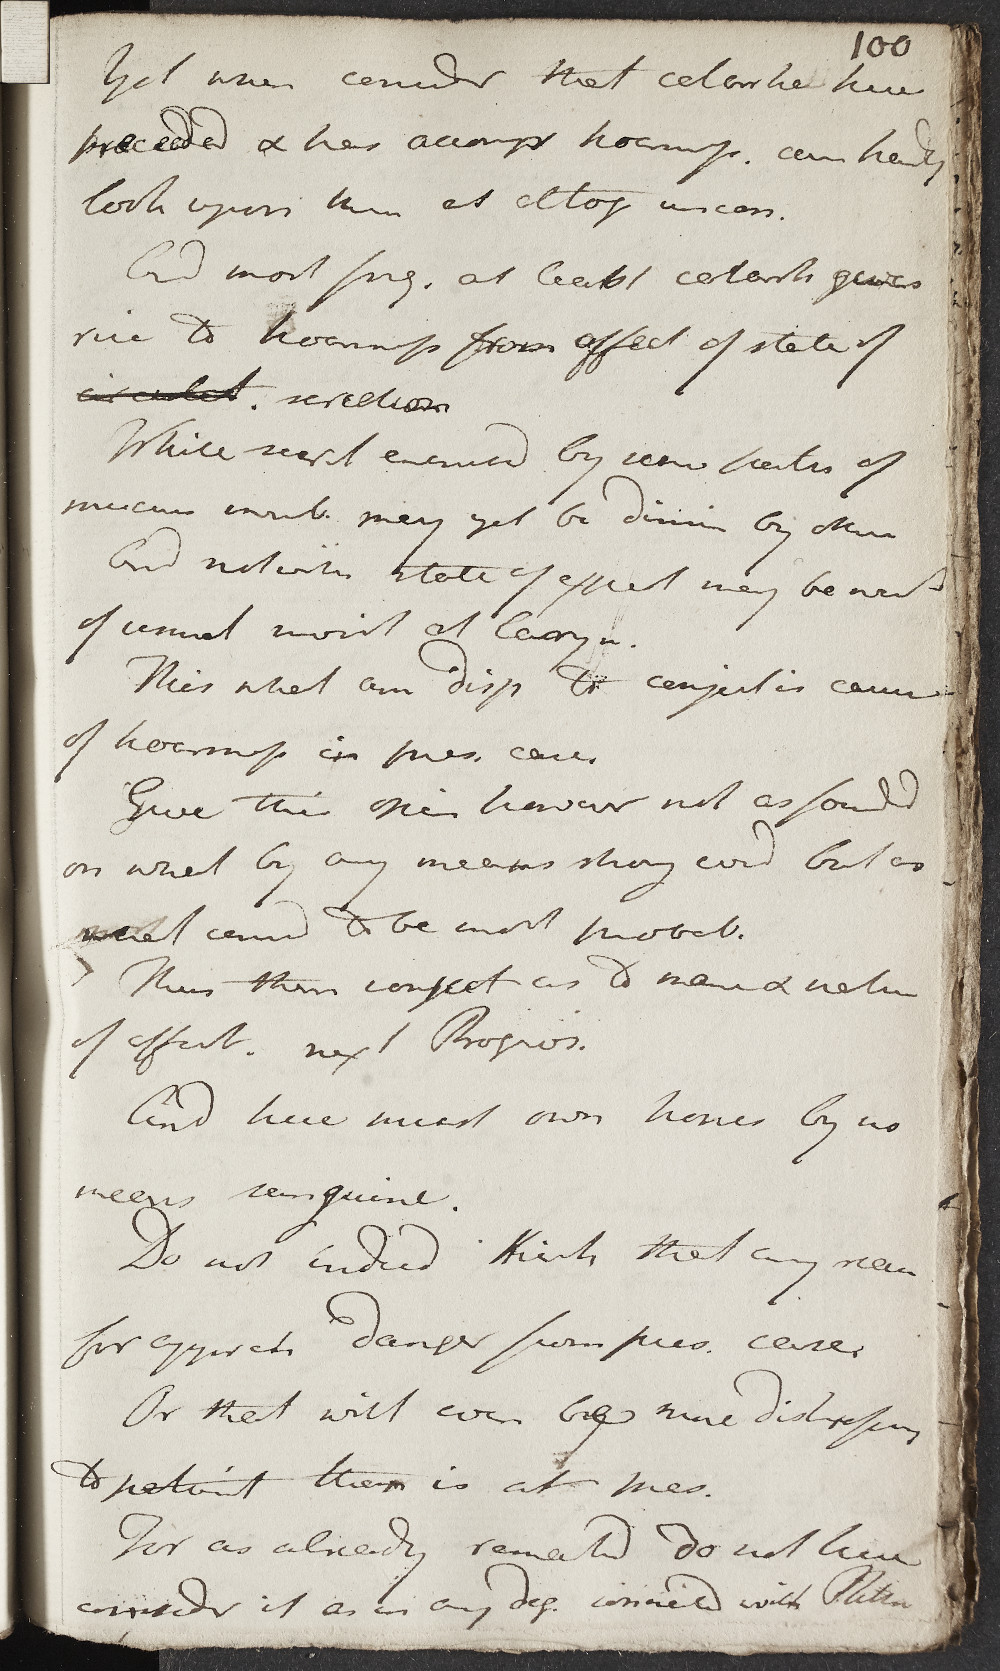 100
Yet when consider that catarrhe have
preceeded & has accomp hoarness. can hardly
look upon them as altog uncon.
And most freq. at least catarrh gives
rise to hoarness from affect of state of
circulat. secretion
While secret encreased by some parts of
mucus memb. may yet be dimin by other
And notwith state of expect may be want
of usual moist at Larynx.
This what am disp to conject is cause
of hoarness in pres. case.
Give this opin however not as founded
on what by any means strong evid but as
what seems to be most probab.
Thus then conject as to name & nature
of affect. next Prognos.
And here must own hopes by no
means sanguine.
Do not indeed think that any reason
for appreh danger from pres. case.
Or that will even be more distressing
to patient than is at pres.
For as already remarked do not here
consider it as in any deg. connected with Phthis